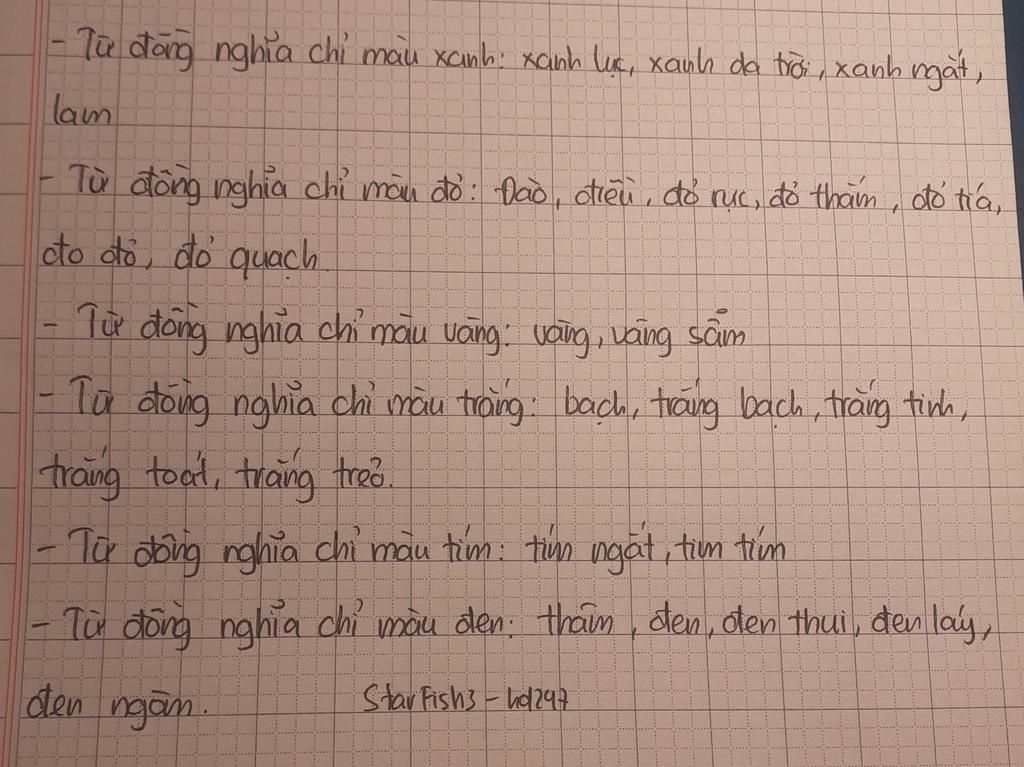 - Từ đồng nghĩa chỉ màu xanh: xanh lục, xanh da trời, xanh ngắt,
lam
- Từ đồng nghĩa chỉ màu đỏ: Đào, điều, đỏ rục, đỏ thắm, đỏ tía,
đo đỏ, đỏ quạch
- Từ đồng nghĩa chỉ màu vàng: vàng, vàng sẫm
- Từ đồng nghĩa chỉ màu trắng: bạch, trắng bạch, trắng tinh,
trắng toát, trắng trẻo.
- Từ đồng nghĩa chỉ màu tím: tím ngắt, tim tím
- Từ đồng nghĩa chỉ màu đen: thâm, đen, đen thui, đen láy,
đen ngòm. StarFish3 - hd247